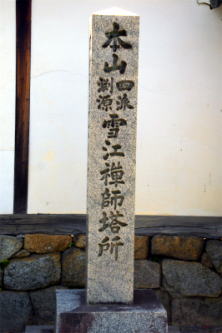 本山四派渕源雪江禪師塔所